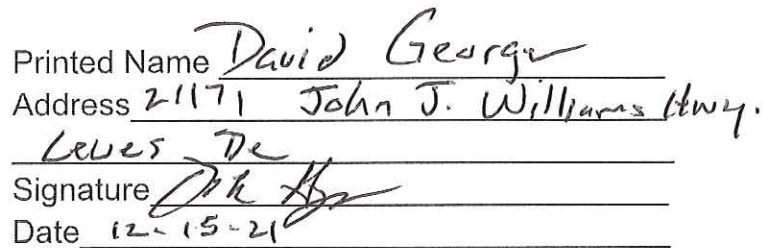 Printed Name David George
Address 21171 John J. Williams Hwy.
Lewes De
Signature
Date 12-15-21